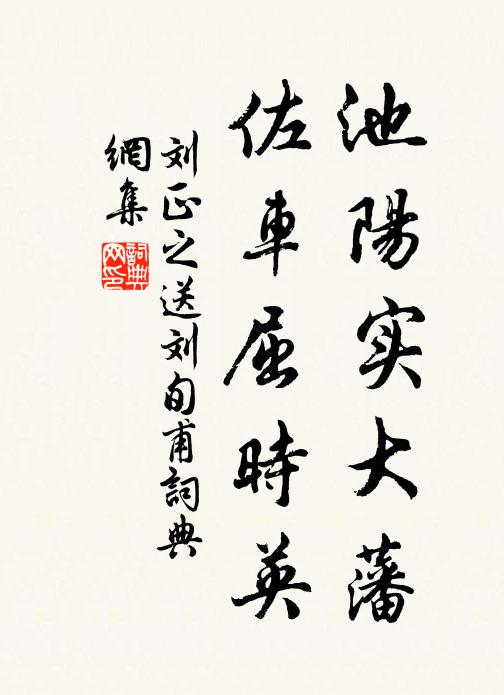 池陽实大藩
佐車屈時英
刘正之送刘旬甫詞典
網集
詞典
网印